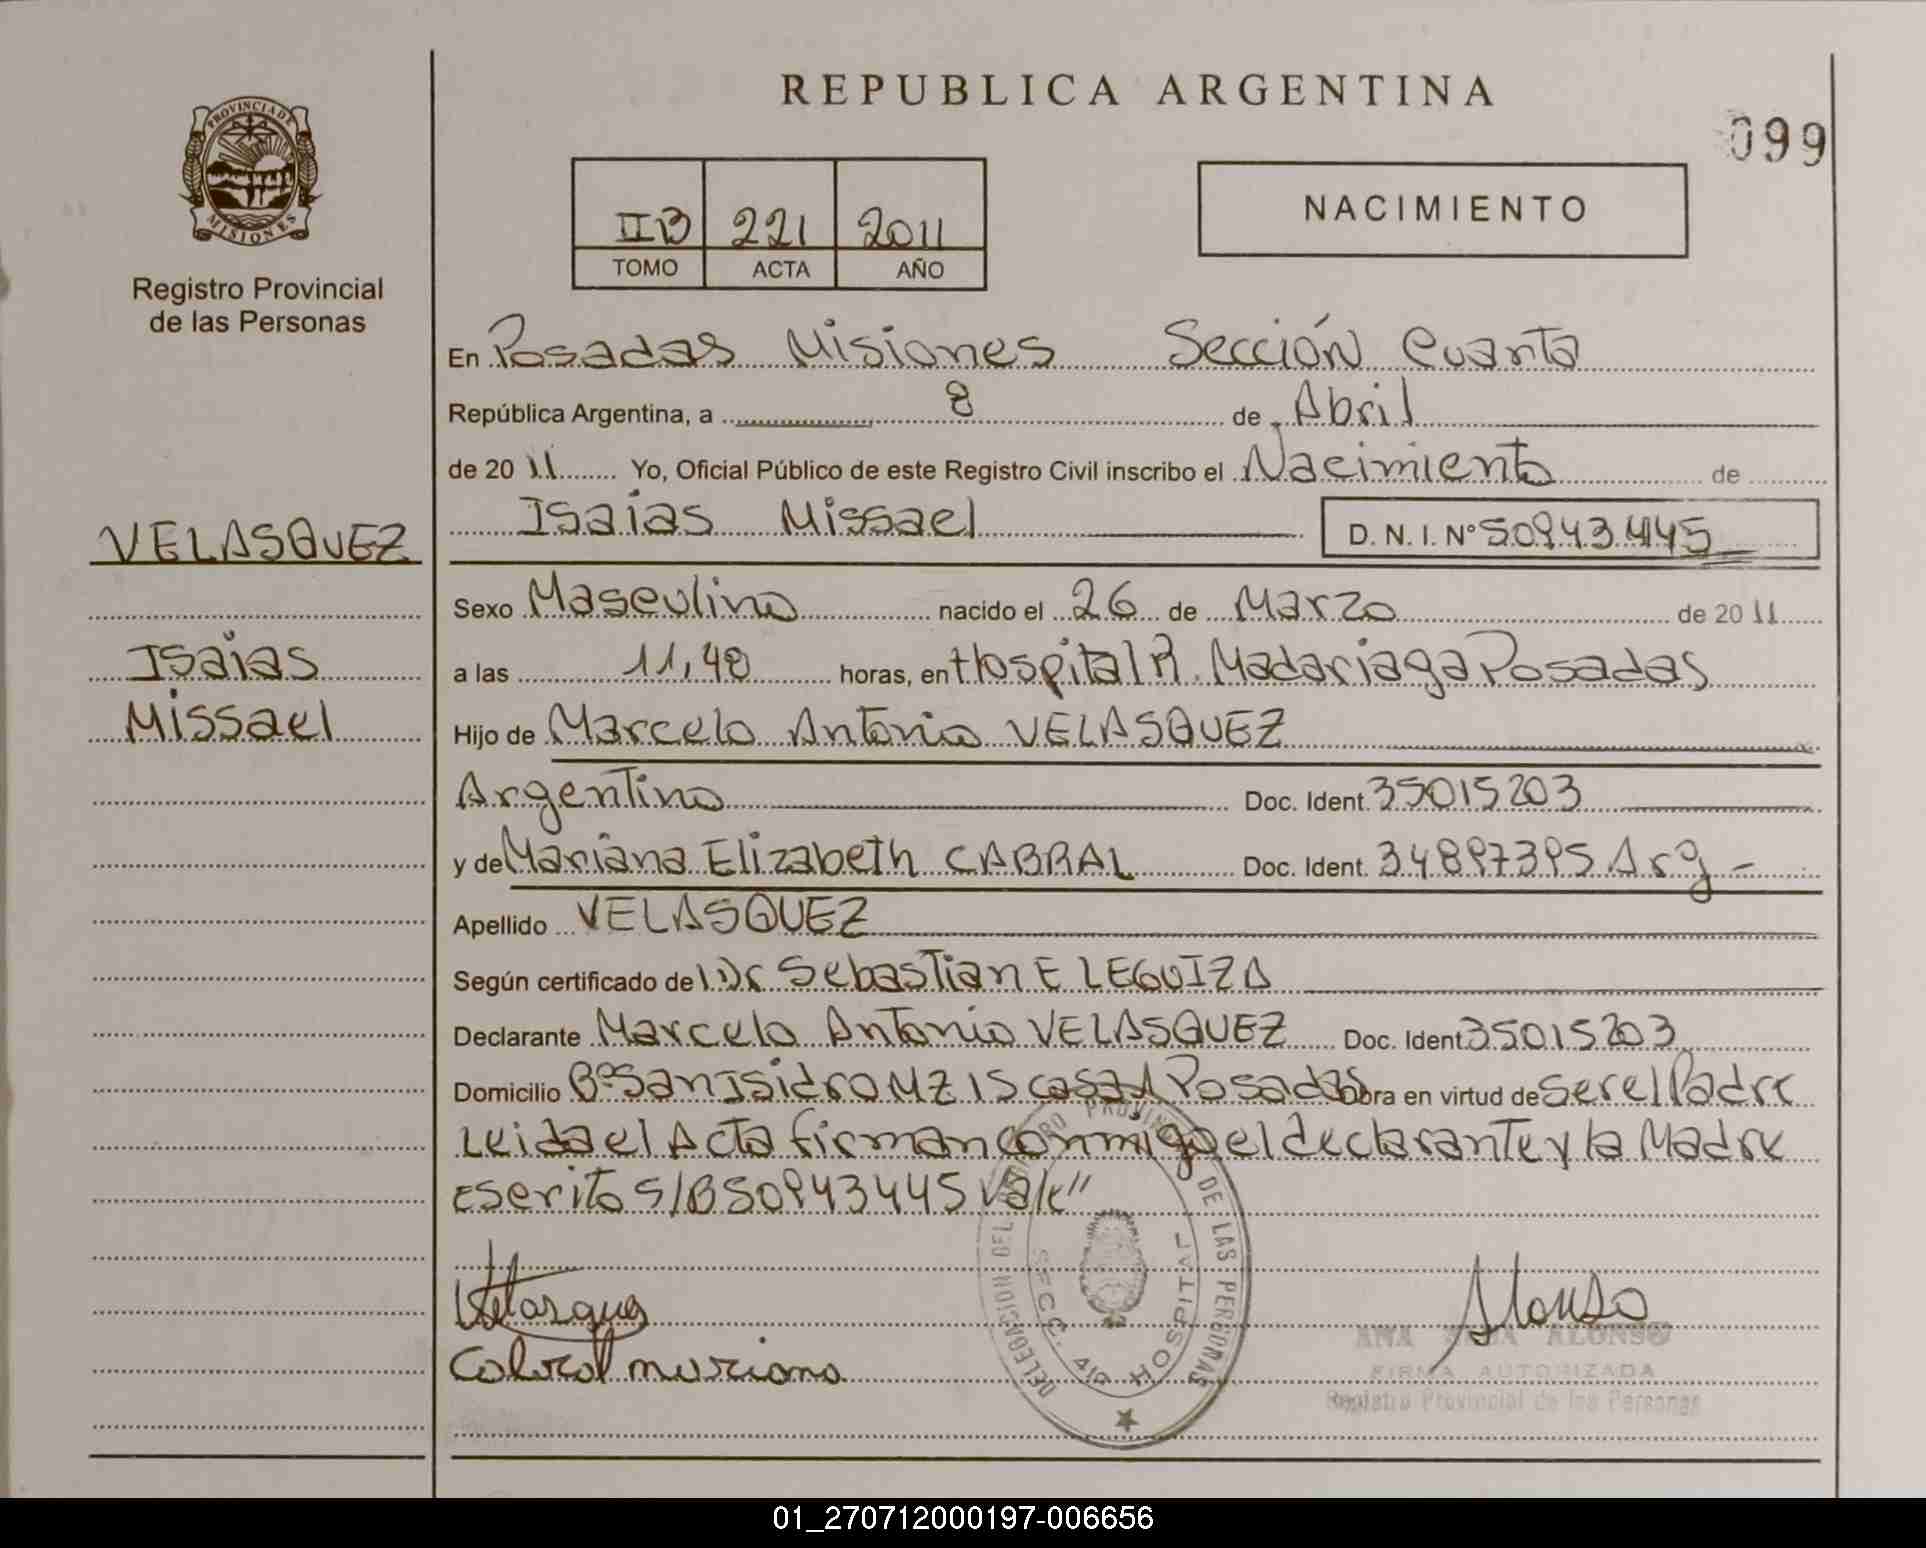 REPUBLICA ARGENTINA
099
PROVINCIA DE
MISIONES
Registro Provincial
de las Personas
IIB 221 2011
TOMO ACTA AÑO
NACIMIENTO
En Posadas Misiones Sección Cuarta
República Argentina, a 8 de Abril
de 2011 Yo, Oficial Público de este Registro Civil inscribo el Nacimiento de
Isaias Missael D. N. I. N° 50943445
VELASQUEZ
Isaias
Missael
Sexo Masculino nacido el 26 de Marzo de 2011
a las 11,40 horas, en Hospital R. Madariaga Posadas
Hijo de Marcelo Antonio VELASQUEZ
Argentino Doc. Ident. 35015203
y de Mariana Elizabeth CABRAL Doc. Ident. 34897395 Arg -
Apellido VELASQUEZ
Según certificado de Dr Sebastian E LEGUIZA
Declarante Marcelo Antonio VELASQUEZ Doc. Ident 35015203
Domicilio B° San Isidro MZ 15 casa 1 Posadas obra en virtud de ser el Padre
Leida el Acta firman conmigo el declarante y la Madre
Escrito S/B 50943445 Vale"
Velasquez
Cabral mariana
DELEGACION DEL REGISTRO PROVINCIAL DE LAS PERSONAS
SECC. 4ta HOSPITAL
Alonso
ANA ALONSO
FIRMA AUTORIZADA
Registro Provincial de las Personas
01_270712000197-006656